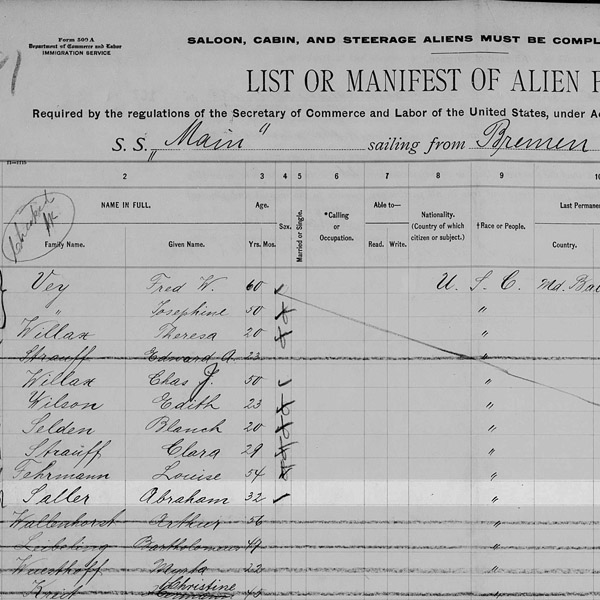 Form 500 A
Department of Commerce and Labor
IMMIGRATION SERVICE
SALOON, CABIN, AND STEERAGE ALIENS MUST BE COMPL
LIST OR MANIFEST OF ALIEN P
Required by the regulations of the Secretary of Commerce and Labor of the United States, under A
S. S. „Main" sailing from Bremen
2 3 4 5 6 7 8 9 10
NAME IN FULL. Age. Sex. Married or Single. *Calling or Occupation. Able to— Nationality. (Country of which citizen or subject.) †Race or People. Last Permanen
Family Name. Given Name. Yrs. Mos. Read. Write. Country.
Checked
Vey Fred W. 60 U. S. C. Md. Bal
" Josephine 50 "
Willax Theresa 20 "
Strauff Edward A. 23 "
Willax Chas J. 50 "
Wilson Edith 23 "
Selden Blanch 20 "
Strauff Clara 29 "
Fehrmann Louise 54 "
Saller Abraham 32 "
Wallenhorst Arthur 56 "
Liebeling Bartholomeus 49 "
Wuesthoff Meta 22 "
Christine
45 "